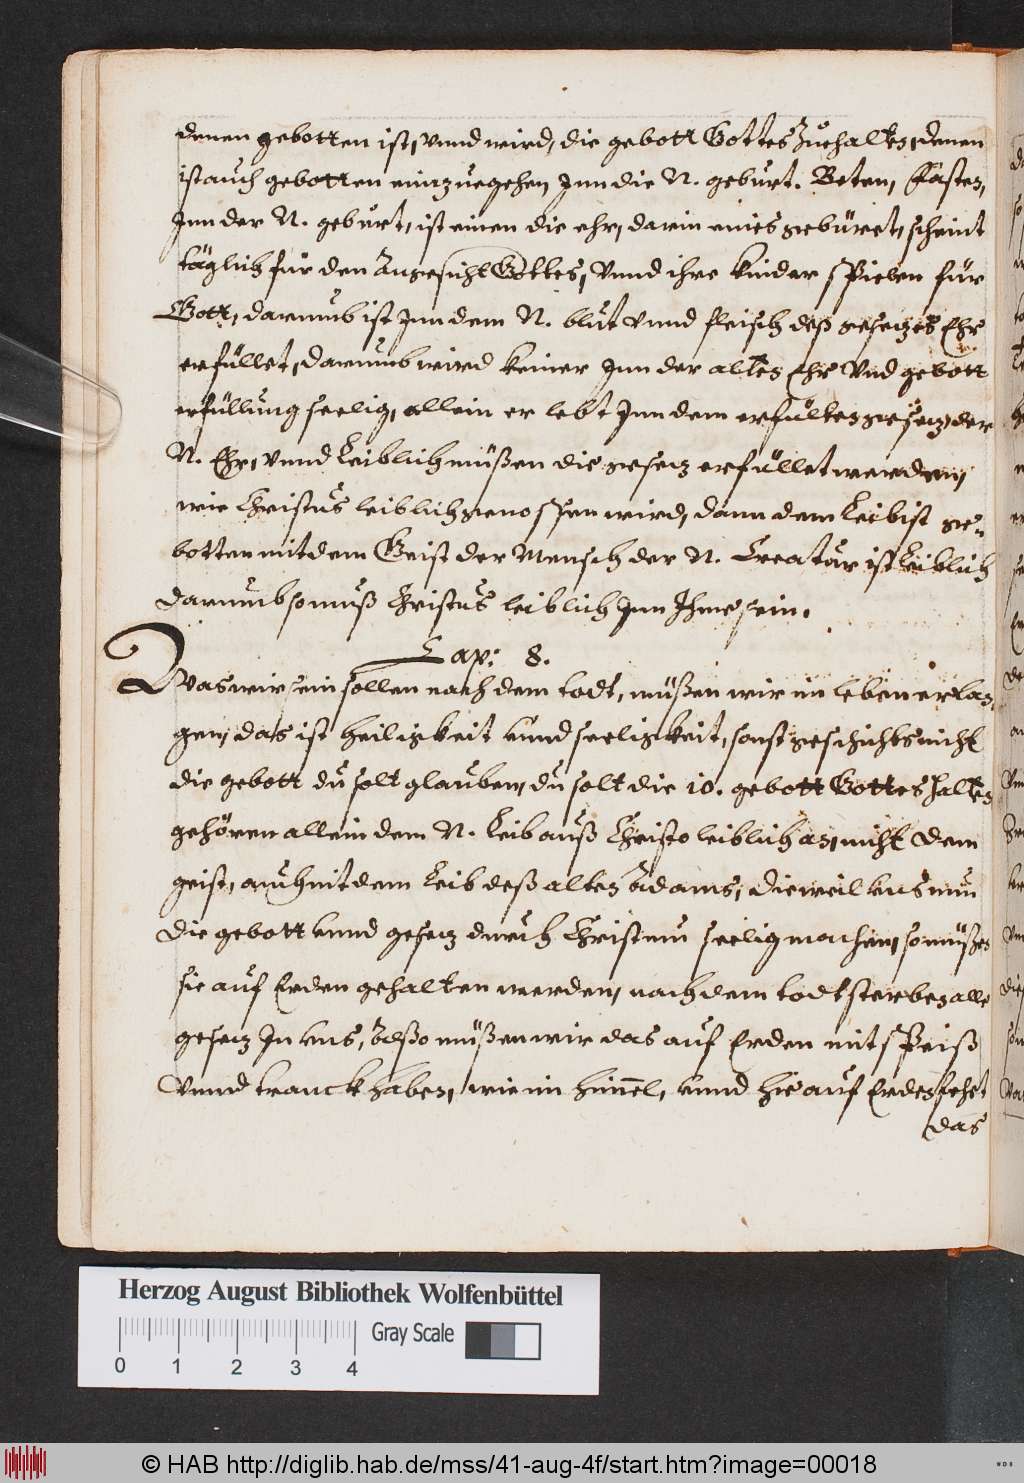 denen gebotten ist, vnnd wird, die gebott Gottes Zuehalten, denen
ist auch gebotten einzuegehen Inn die N. geburt. Beten, Fasten,
Inn der N. geburt, ist einen die ehr, darin eines gebüret, scheint
täglich für den Angesicht Gottes, Vnnd ihre kinder spielen für
Gott, darumb ist Inn dem N. blut Vnnd fleisch deß gesezes Ehr
erfüllet, darumb wird keiner Inn der alten Ehr Vnd gebott
erfüllung seelig, allein er lebt Inn dem erfülten gesez, der
N. Ehr, Vnnd Leiblich müßen die gesez erfüllet werden,
wie Christus leiblich genossen wird, dann dem Leib ist ge-
botten mit dem Geist der Mensch der N. Creatur ist Leiblich
darumb so muß Christus leiblich Inn Ihme sein.
Cap: 8.
Was wir sein sollen nach dem todt, müßen wir im leben erlan-
gen, das ist heiligkeit vnnd seeligkeit, sonst geschichts nicht
die gebott du solt glauben, du solt die 10. gebott Gottes halten
gehören allein dem N. Leib auß Christo leiblich an, nicht dem
geist, auch nit dem Leib deß alten Adams, Dieweil vns nun
die gebott vnnd gesez durch Christum seelig machen, so müßen
sie auf Erden gehalten werden, nach dem todt sterben alle
gesez In vns, Also müßen wir das auf Erden mit speiß
Vnnd tranck haben, wie im himmel, vnnd hie auf Erden
das
Herzog August Bibliothek Wolfenbüttel
Gray Scale
0 1 2 3 4
© HAB http://diglib.hab.de/mss/41-aug-4f/start.htm?image=00018